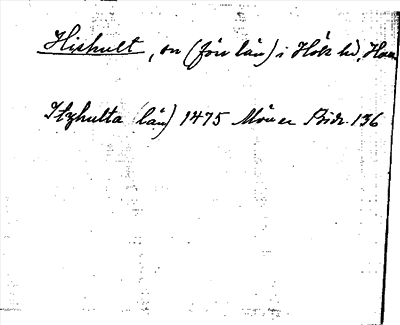 Hishult, sn (förr län) i Höks hd, Hall
Itzhulta län) 1475 Möller Bidr. 136